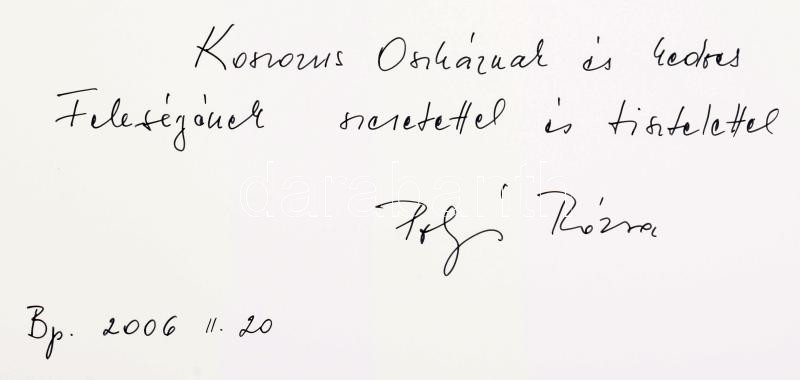 Koszorus Oszkárnak és kedves
Feleségének szeretettel és tisztelettel
darabanth
Polgár Rózsa
Bp. 2006 11. 20